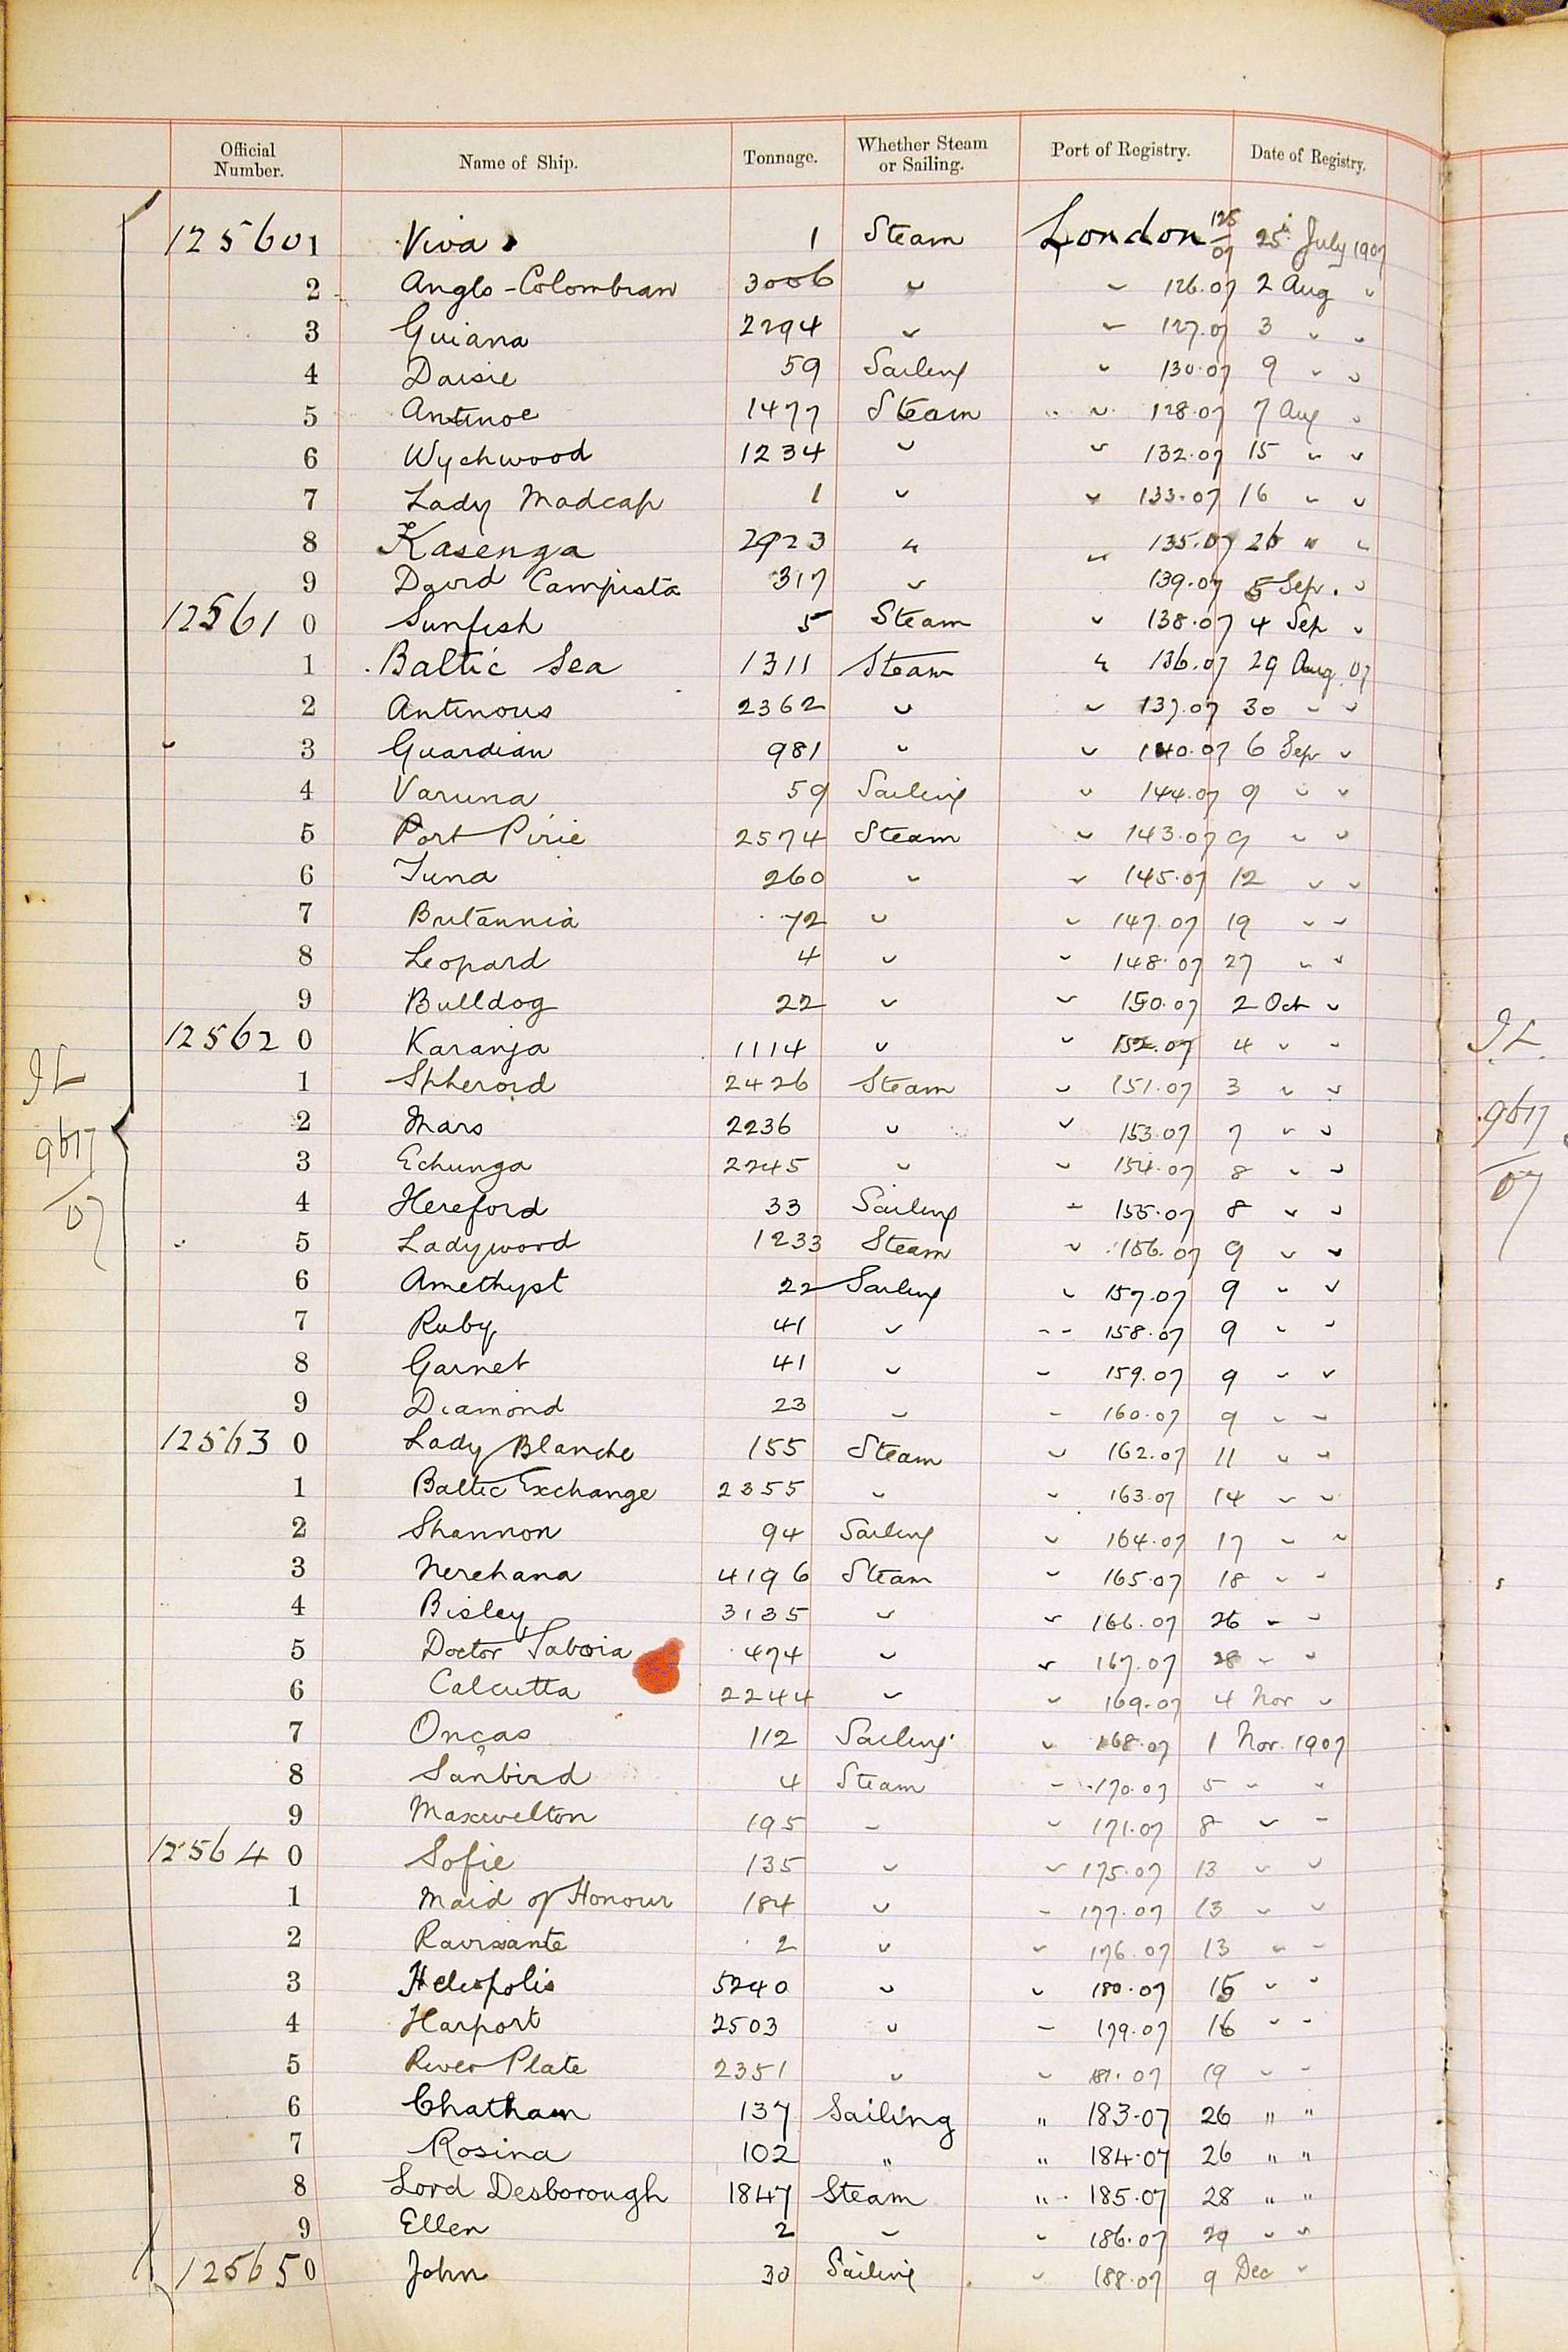 Official Number. Name of Ship. Tonnage. Whether Steam or Sailing. Port of Registry. Date of Registry.
125601 Viva 1 Steam London 125/07 25 July 1907
2 Anglo-Colombian 3006 " " 126.07 2 Aug "
3 Guiana 2294 " " 127.07 3 " "
4 Daisie 59 Sailing " 130.07 9 " "
5 Antinoe 1477 Steam " 128.07 7 Aug "
6 Wychwood 1234 " " 132.07 15 " "
7 Lady Madcap 1 " " 133.07 16 " "
8 Kasenga 2923 " " 135.07 26 " "
9 David Campista 317 " 139.07 5 Sep. "
125610 Sunfish 5 Steam " 138.07 4 Sep "
1 Baltic Sea 1311 Steam " 136.07 29 Aug 07
2 Antinous 2362 " " 137.07 30 " "
3 Guardian 981 " " 140.07 6 Sep "
4 Varuna 59 Sailing " 144.07 9 " "
5 Port Pirie 2574 Steam " 143.07 9 " "
6 Tuna 260 " " 145.07 12 " "
7 Britannia 72 " " 147.07 19 " "
8 Leopard 4 " " 148.07 27 " "
9 Bulldog 22 " " 150.07 2 Oct "
125620 Karanja 1114 " " 152.07 4 " "
1 Spheroid 2426 Steam " 151.07 3 " "
2 Mars 2236 " " 153.07 7 " "
3 Echunga 2245 " " 154.07 8 " "
4 Hereford 33 Sailing " 155.07 8 " "
5 Ladywood 1233 Steam " 156.07 9 " "
6 Amethyst 22 Sailing " 157.07 9 " "
7 Ruby 41 " " 158.07 9 " "
8 Garnet 41 " " 159.07 9 " "
9 Diamond 23 " " 160.07 9 " "
125630 Lady Blanche 155 Steam " 162.07 11 " "
1 Baltic Exchange 2355 " " 163.07 14 " "
2 Shannon 94 Sailing " 164.07 17 " "
3 Nerehana 4196 Steam " 165.07 18 " "
4 Bisley 3135 " " 166.07 26 " "
5 Doctor Saboia 474 " " 167.07 28 " "
6 Calcutta 2244 " " 169.07 4 Nov "
7 Onças 112 Sailing " 168.07 1 Nov. 1907
8 Sanbird 4 Steam " 170.07 5 " "
9 Maxwelton 195 " " 171.07 8 " "
125640 Sofie 135 " " 175.07 13 " "
1 Maid of Honour 184 " " 177.07 13 " "
2 Ravissante 2 " " 176.07 13 " "
3 Heliopolis 5240 " " 180.07 15 " "
4 Harport 2503 " " 179.07 16 " "
5 River Plate 2351 " " 181.07 19 " "
6 Chatham 137 Sailing " 183.07 26 " "
7 Rosina 102 " " 184.07 26 " "
8 Lord Desborough 1847 Steam " 185.07 28 " "
9 Ellen 2 " " 186.07 29 " "
125650 John 30 Sailing " 188.07 9 Dec "
IL
9617
/07
IL
9617
/07